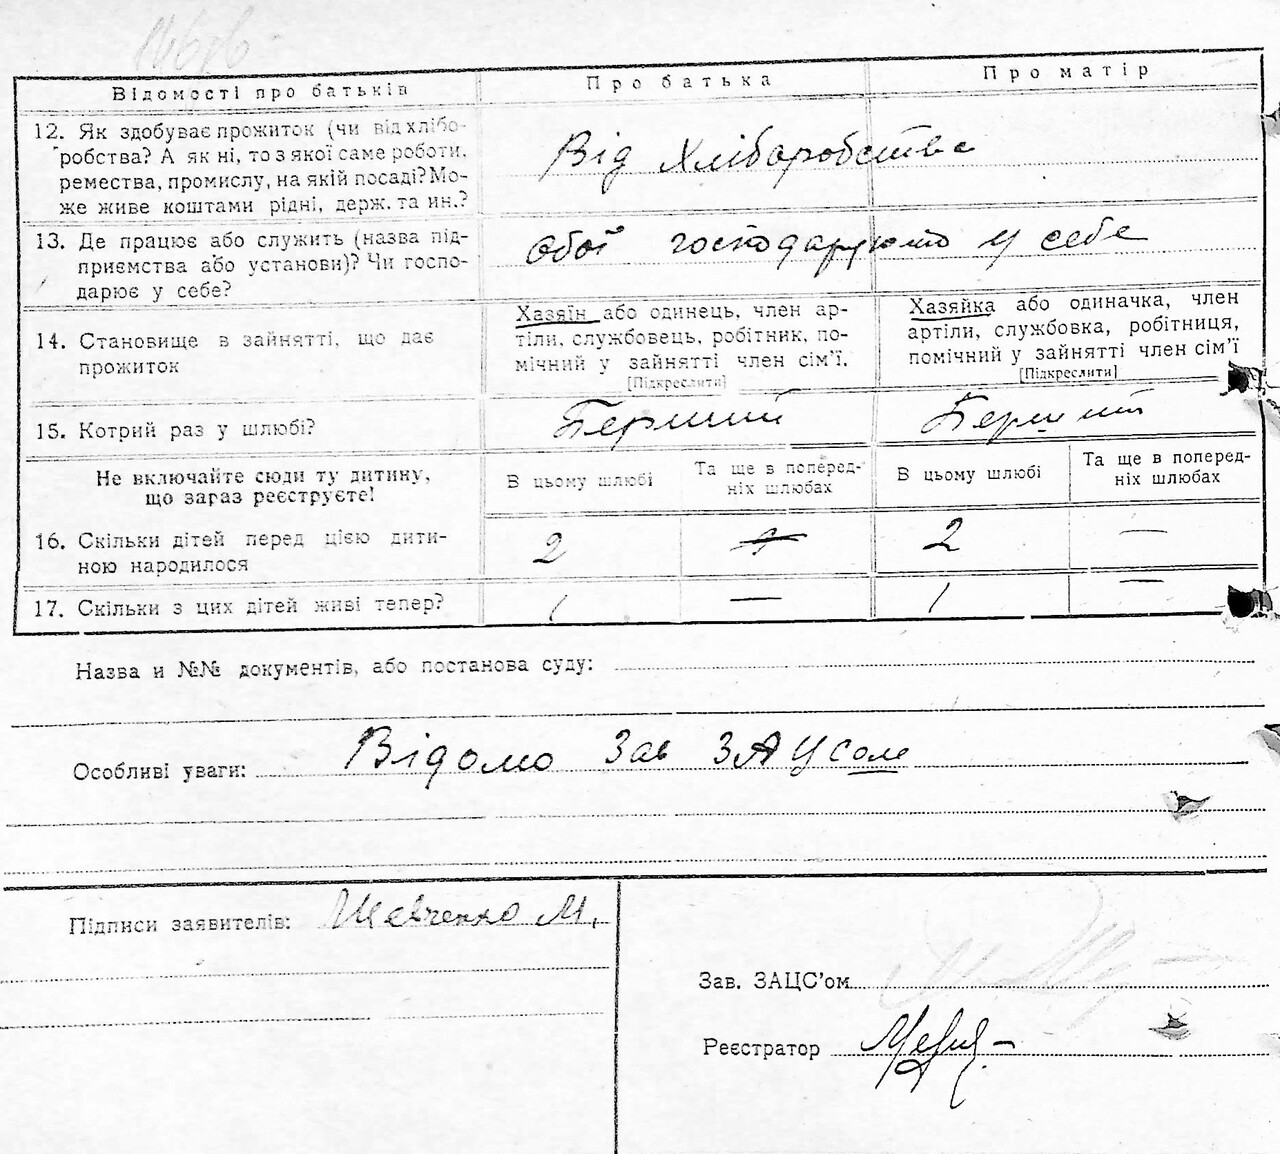 Відомості про батьків
Про батька
Про матір
12. Як здобуває прожиток (чи від хлібо-
робства? А як ні, то з якої саме роботи,
ремества, промислу, на якій посаді? Мо-
же живе коштами рідні, держ. та ин.?
Від Хлібаробства
13. Де працює або служить (назва під-
приємства або установи)? Чи госпо-
дарює у себе?
Обої господарують у себе
14. Становище в зайнятті, що дає
прожиток
Хазяїн або одинець, член ар-
тіли, службовець, робітник, по-
мічний у зайнятті член сім’ї.
[Підкреслити]
Хазяйка або одиначка, член
артіли, службовка, робітниця,
помічний у зайнятті член сім’ї
[Підкреслити]
15. Котрий раз у шлюбі?
Перший
Перший
Не включайте сюди ту дитину,
що зараз реєструєте!
В цьому шлюбі
Та ще в поперед-
ніх шлюбах
В цьому шлюбі
Та ще в поперед-
ніх шлюбах
16. Скільки дітей перед цією дити-
ною народилося
2
2
—
17. Скільки з цих дітей живі тепер?
1
—
1
—
Назва и №№ документів, або постанова суду:
Особливі уваги: Відомо Зав ЗАЦСом
Підписи заявителів: Шевченко М.
Зав. ЗАЦС’ом
Реєстратор